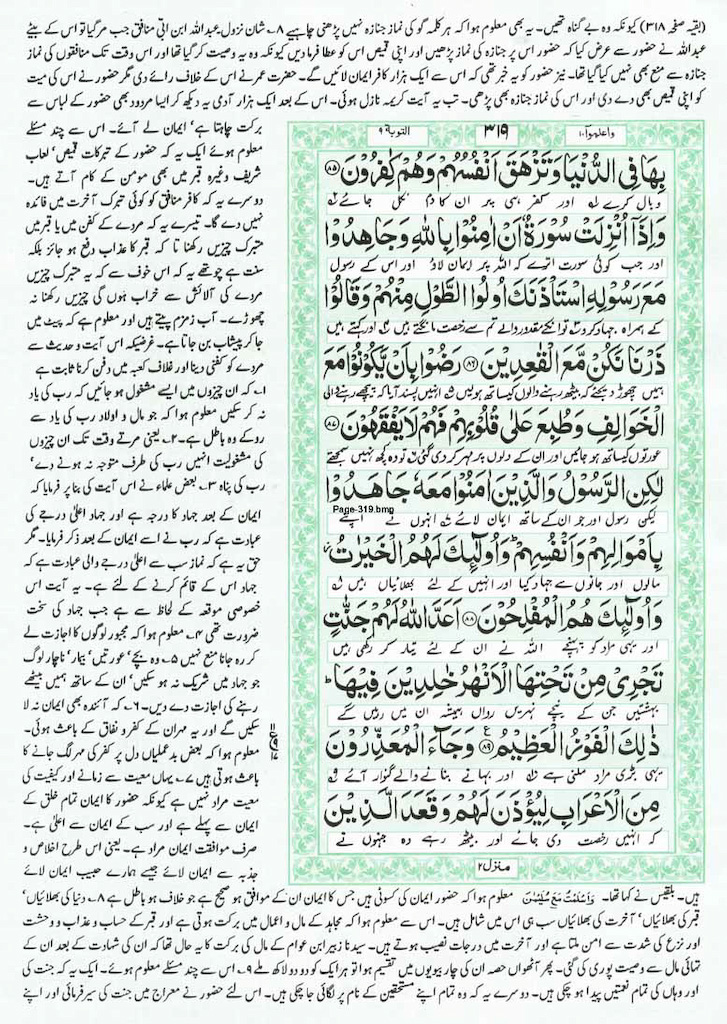 (بقیہ صفحہ ۳۱۸) کیونکہ وہ بے گناہ تھیں۔ یہ بھی معلوم ہوا کہ ہر کلمہ گو کی نماز جنازہ نہیں پڑھنی چاہیے ۸۔ شان نزول۔ عبداللہ ابن ابی منافق جب مر گیا تو اس کے بیٹے
عبداللہ نے حضور سے عرض کیا کہ حضور اس پر جنازہ کی نماز پڑھیں اور اپنی قمیص اس کو عطا فرما دیں کیونکہ وہ یہ وصیت کر گیا تھا اور اس وقت تک منافقوں کی نماز
جنازہ سے منع بھی نہیں کیا گیا تھا۔ نیز حضور کو یہ خبر تھی کہ اس سے ایک ہزار کافر ایمان لائیں گے۔ حضرت عمر نے اس کے خلاف رائے دی مگر حضور نے اس کی میت
کو اپنی قمیص بھی دے دی اور اس کی نماز جنازہ بھی پڑھی۔ تب یہ آیت کریمہ نازل ہوئی۔ اس کے بعد ایک ہزار آدمی یہ دیکھ کر ایسا مردود بھی حضور کے لباس سے
برکت چاہتا ہے' ایمان لے آئے۔ اس سے چند مسئلے
معلوم ہوئے ایک یہ کہ حضور کے تبرکات قمیص' لعاب
شریف وغیرہ قبر میں بھی مومن کے کام آتے ہیں۔
دوسرے یہ کہ کافر منافق کو کوئی تبرک آخرت میں فائدہ
نہیں دے گا۔ تیسرے یہ کہ مردے کے کفن میں یا قبر میں
متبرک چیزیں رکھنا تا کہ قبر کا عذاب دفع ہو جائز بلکہ
سنت ہے چوتھے یہ کہ اس خوف سے کہ یہ متبرک چیزیں
مردے کی آلائش سے خراب ہوں گی چیزیں رکھنا نہ
چھوڑے۔ آب زمزم پیتے ہیں اور معلوم ہے کہ پیٹ میں
جا کر پیشاب بن جاتا ہے۔ غرضیکہ اس آیت و حدیث سے
مردے کو کفنی دینا اور غلاف کعبہ میں دفن کرنا ثابت ہے
۱۔ کہ ان چیزوں میں ایسے مشغول ہو جائیں کہ رب کی یاد
نہ کر سکیں معلوم ہوا کہ جو مال و اولاد رب کی یاد سے
روکے وہ باطل ہے۔ ۲۔ یعنی مرتے وقت تک ان چیزوں
کی مشغولیت انہیں رب کی طرف متوجہ نہ ہونے دے'
رب کی پناہ ۳۔ بعض علماء نے اس آیت کی بنا پر فرمایا کہ
ایمان کے بعد جہاد کا درجہ ہے اور جہاد اعلیٰ درجے کی
عبادت ہے کہ رب نے اسے ایمان کے بعد ذکر فرمایا۔ مگر
حق یہ ہے کہ نماز سب سے اعلیٰ درجے والی عبادت ہے کہ
جہاد اس کے قائم کرنے کے لئے ہے۔ یہ آیت اس
خصوصی موقعہ کے لحاظ سے ہے جب جہاد کی سخت
ضرورت تھی ۴۔ معلوم ہوا کہ مجبور لوگوں کا اجازت لے
کر رہ جانا منع نہیں ۵۔ وہ بچے' عورتیں' بیمار' ناچار لوگ
جو جہاد میں شریک نہ ہو سکیں' ان کے ساتھ ہمیں بیٹھے
رہنے کی اجازت دے دیں۔ ۶۔ کہ آئندہ بھی ایمان نہ لا
سکیں گے اور یہ مہر ان کے کفر و نفاق کے باعث ہوئی۔
معلوم ہوا کہ بعض بدعملیاں دل پر کفر کی مہر لگ جانے کا
باعث ہوتی ہیں ۷۔ یہاں معیت سے زمانے اور کیفیت کی
معیت مراد نہیں ہے کیونکہ حضور کا ایمان تمام خلق کے
ایمان سے پہلے ہے اور سب کے ایمان سے اعلیٰ ہے۔
صرف موافقت ایمان مراد ہے۔ یعنی اس طرح اخلاص و
جذبہ سے ایمان لائے جیسے ہمارے حبیب ایمان لائے
واعلموا۱۰ ۳۱۹ التوبۃ۹
بِهَا فِي الدُّنْيَا وَتَزْهَقَ اَنْفُسُهُمْ وَهُمْ كٰفِرُوْنَ ۝۸۵
وبال کرے اور کفر ہی پر ان کا دم نکل جائے
وَاِذَآ اُنْزِلَتْ سُوْرَةٌ اَنْ اٰمِنُوْا بِاللّٰهِ وَجَاهِدُوْا
اور جب کوئی سورت اترے کہ اللہ پر ایمان لاؤ اور اس کے رسول
مَعَ رَسُوْلِهِ اسْتَاْذَنَكَ اُولُوا الطَّوْلِ مِنْهُمْ وَقَالُوْا
کے ہمراہ جہاد کرو تو انکے مقدور والے تم سے رخصت مانگتے ہیں اور کہتے ہیں
ذَرْنَا نَكُنْ مَّعَ الْقٰعِدِيْنَ ۝۸۶ رَضُوْا بِاَنْ يَّكُوْنُوْا مَعَ
ہمیں چھوڑ دیجئے کہ بیٹھ رہنے والوں کیساتھ ہولیں انہیں پسند آیا کہ پیچھے رہنے والی
الْخَوَالِفِ وَطُبِعَ عَلٰى قُلُوْبِهِمْ فَهُمْ لَا يَفْقَهُوْنَ ۝۸۷
عورتوں کیساتھ ہو جائیں اور ان کے دلوں پر مہر کر دی گئی تو وہ کچھ نہیں سمجھتے
لٰكِنِ الرَّسُوْلُ وَالَّذِيْنَ اٰمَنُوْا مَعَهٗ جَاهَدُوْا
Page-319.bmp
لیکن رسول اور جو ان کے ساتھ ایمان لائے انہوں نے اپنے
بِاَمْوَالِهِمْ وَاَنْفُسِهِمْ وَاُولٰٓئِكَ لَهُمُ الْخَيْرٰتُ
مالوں اور جانوں سے جہاد کیا اور انہیں کے لئے بھلائیاں ہیں
وَاُولٰٓئِكَ هُمُ الْمُفْلِحُوْنَ ۝۸۸ اَعَدَّ اللّٰهُ لَهُمْ جَنّٰتٍ
اور یہی مراد کو پہنچے اللہ نے ان کے لئے تیار کر رکھی ہیں
تَجْرِيْ مِنْ تَحْتِهَا الْاَنْهٰرُ خٰلِدِيْنَ فِيْهَا ط
بہشتیں جن کے نیچے نہریں رواں ہمیشہ ان میں رہیں گے
ذٰلِكَ الْفَوْزُ الْعَظِيْمُ ۝۸۹ وَجَآءَ الْمُعَذِّرُوْنَ
یہی بڑی مراد ملنی ہے اور بہانے بنانے والے گنوار آئے
مِنَ الْاَعْرَابِ لِيُؤْذَنَ لَهُمْ وَقَعَدَ الَّذِيْنَ
کہ انہیں رخصت دی جائے اور بیٹھ رہے وہ جنہوں نے
منزل۲
ہیں۔ بلقیس نے کہا تھا۔ وَاَسْلَمْتُ مَعَ سُلَيْمٰنَ معلوم ہوا کہ حضور ایمان کی کسوٹی ہیں جس کا ایمان ان کے موافق ہو صحیح ہے جو خلاف ہو باطل ہے ۸۔ دنیا کی بھلائیاں'
قبر کی بھلائیاں' آخرت کی بھلائیاں سب ہی اس میں شامل ہیں۔ اس سے معلوم ہوا کہ مجاہد کے مال و اعمال میں برکت ہوتی ہے اور قبر کے حساب و عذاب و وحشت
اور نزع کی شدت سے امن ملتا ہے اور آخرت میں درجات نصیب ہوتے ہیں۔ سیدنا زبیر ابن عوام کے مال کی برکت کا یہ حال تھا کہ ان کی شہادت کے بعد ان کے
تہائی مال سے وصیت پوری کی گئی۔ پھر آٹھواں حصہ ان کی چار بیویوں میں تقسیم ہوا تو ہر ایک کو دو دو لاکھ ملے ۹۔ اس سے چند مسئلے معلوم ہوئے۔ ایک یہ کہ جنت کی
اور وہاں کی تمام نعمتیں پیدا ہو چکی ہیں۔ دوسرے یہ کہ وہ تمام اپنے مستحقین کے نام پر لگائی جا چکی ہیں۔ اس لئے حضور نے معراج میں جنت کی سیر فرمائی اور اپنے